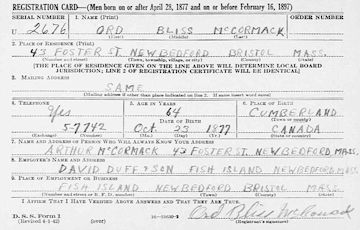 REGISTRATION CARD—(Men born on or after April 28, 1877 and on or before February 16, 1897)
SERIAL NUMBER 1. NAME (Print) ORDER NUMBER
U 2676 ORD BLISS McCORMACK
(First) (Middle) (Last)
2. PLACE OF RESIDENCE (Print)
43 FOSTER ST. NEW BEDFORD BRISTOL MASS.
(Number and street) (Town, township, village, or city) (County) (State)
[THE PLACE OF RESIDENCE GIVEN ON THE LINE ABOVE WILL DETERMINE LOCAL BOARD
JURISDICTION; LINE 2 OF REGISTRATION CERTIFICATE WILL BE IDENTICAL]
3. MAILING ADDRESS
SAME
[Mailing address if other than place indicated on line 2. If same insert word same]
4. TELEPHONE 5. AGE IN YEARS 6. PLACE OF BIRTH
Yes 64 CUMBERLAND
DATE OF BIRTH (Town or county)
5-7742 Oct 23 1877 CANADA
(Exchange) (Number) (Mo.) (Day) (Yr.) (State or country)
7. NAME AND ADDRESS OF PERSON WHO WILL ALWAYS KNOW YOUR ADDRESS
ARTHUR McCORMACK 43 FOSTER ST. NEW BEDFORD MASS.
8. EMPLOYER'S NAME AND ADDRESS
DAVID DUFF & SON FISH ISLAND NEW BEDFORD MASS
9. PLACE OF EMPLOYMENT OR BUSINESS
FISH ISLAND NEW BEDFORD BRISTOL MASS.
(Number and street or R. F. D. number) (Town) (County) (State)
I AFFIRM THAT I HAVE VERIFIED ABOVE ANSWERS AND THAT THEY ARE TRUE.
D. S. S. Form 1
(Revised 4-1-42) (over) Ord Bliss McCormack
(Registrant's signature)